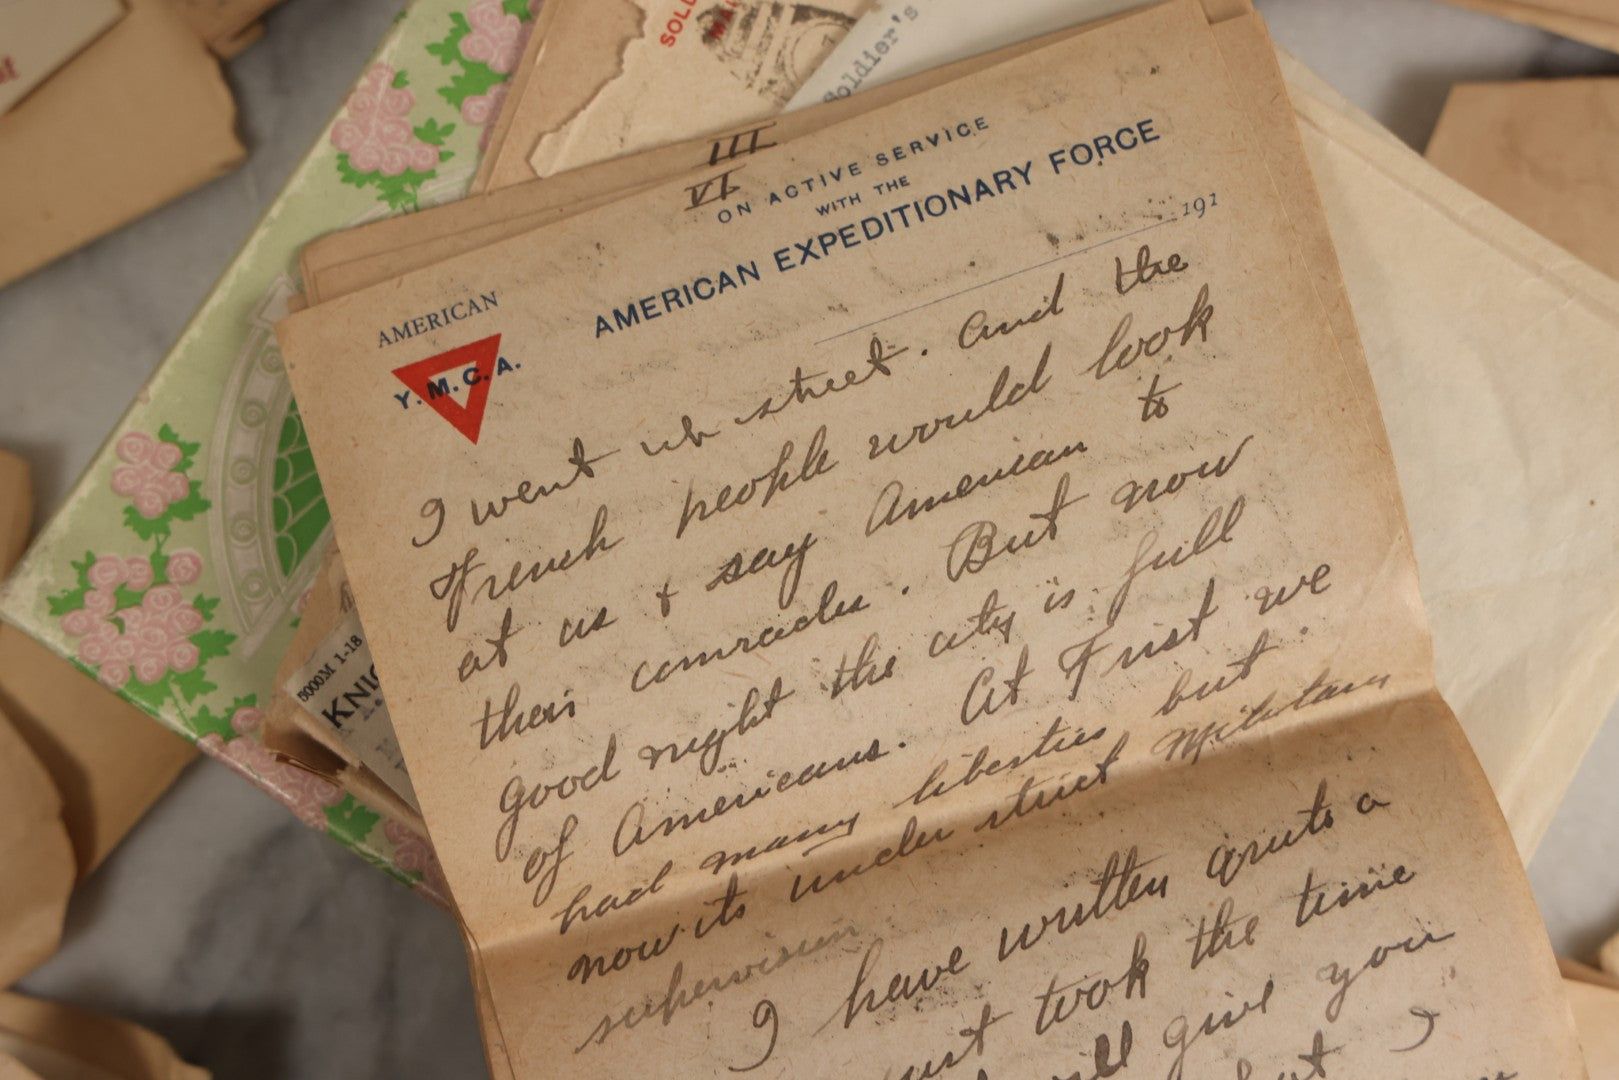 SOLD
MAI
Soldier's
III
VI
ON ACTIVE SERVICE
WITH THE
AMERICAN EXPEDITIONARY FORCE
191
AMERICAN
Y.M.C.A.
I went up street. And the
French people would look
at us & say American to
their comrades. But now
good night the city is full
of Americans. At Frist we
had many liberties but.
now its under strict Militarn
supervision
I have written quite a
just took the time
will give you
5000M 1-18
KNIG